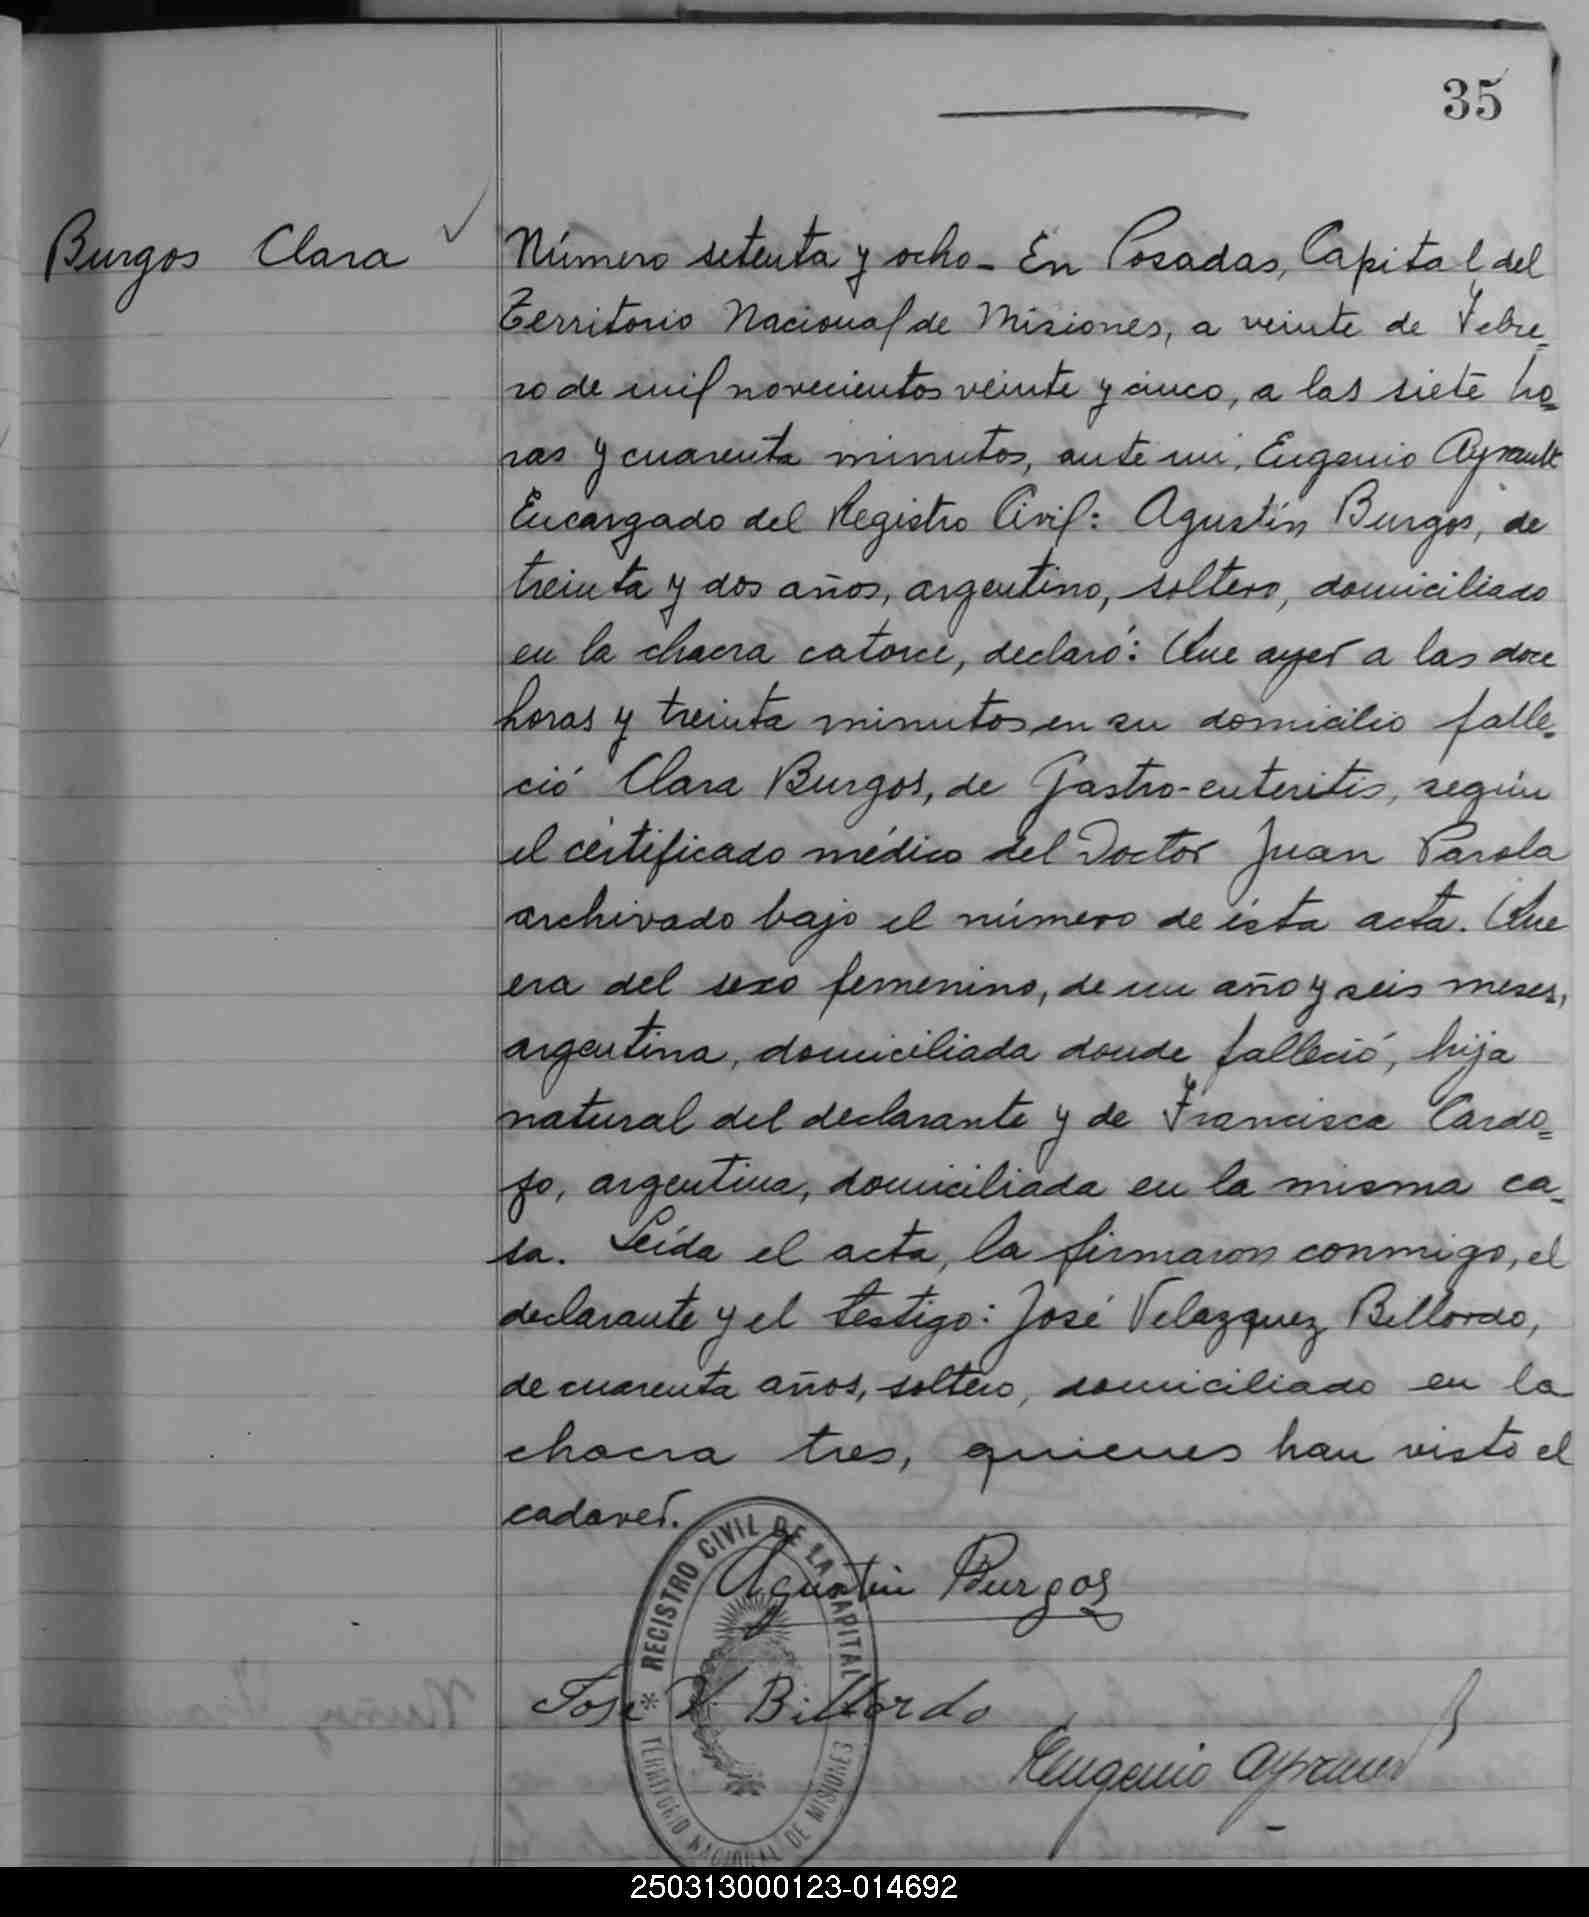 35
Burgos Clara
Número setenta y ocho - En Posadas, Capital del
Territorio Nacional de Misiones, a veinte de Febre-
ro de mil novecientos veinte y cinco, a las siete ho-
ras y cuarenta minutos, ante mi, Eugenio Ayrault
Encargado del Registro Civil: Agustín Burgos, de
treinta y dos años, argentino, soltero, domiciliado
en la chacra catorce, declaró: Que ayer a las doce
horas y treinta minutos en su domicilio falle-
ció Clara Burgos, de Gastro-enteritis, según
el certificado médico del Doctor Juan Parola
archivado bajo el número de ésta acta. Que
era del sexo femenino, de un año y seis meses,
argentina, domiciliada donde falleció, hija
natural del declarante y de Francisca Cardo=
zo, argentina, domiciliada en la misma ca-
sa. Leída el acta, la firmaron conmigo, el
declarante y el testigo: José Velazquez Billordo,
de cuarenta años, soltero, domiciliado en la
chacra tres, quienes han visto el
cadaver.
Agustin Burgos
José V Billordo
Eugenio Ayrault
REGISTRO CIVIL DE LA CAPITAL
* TERRITORIO NACIONAL DE MISIONES
250313000123-014692